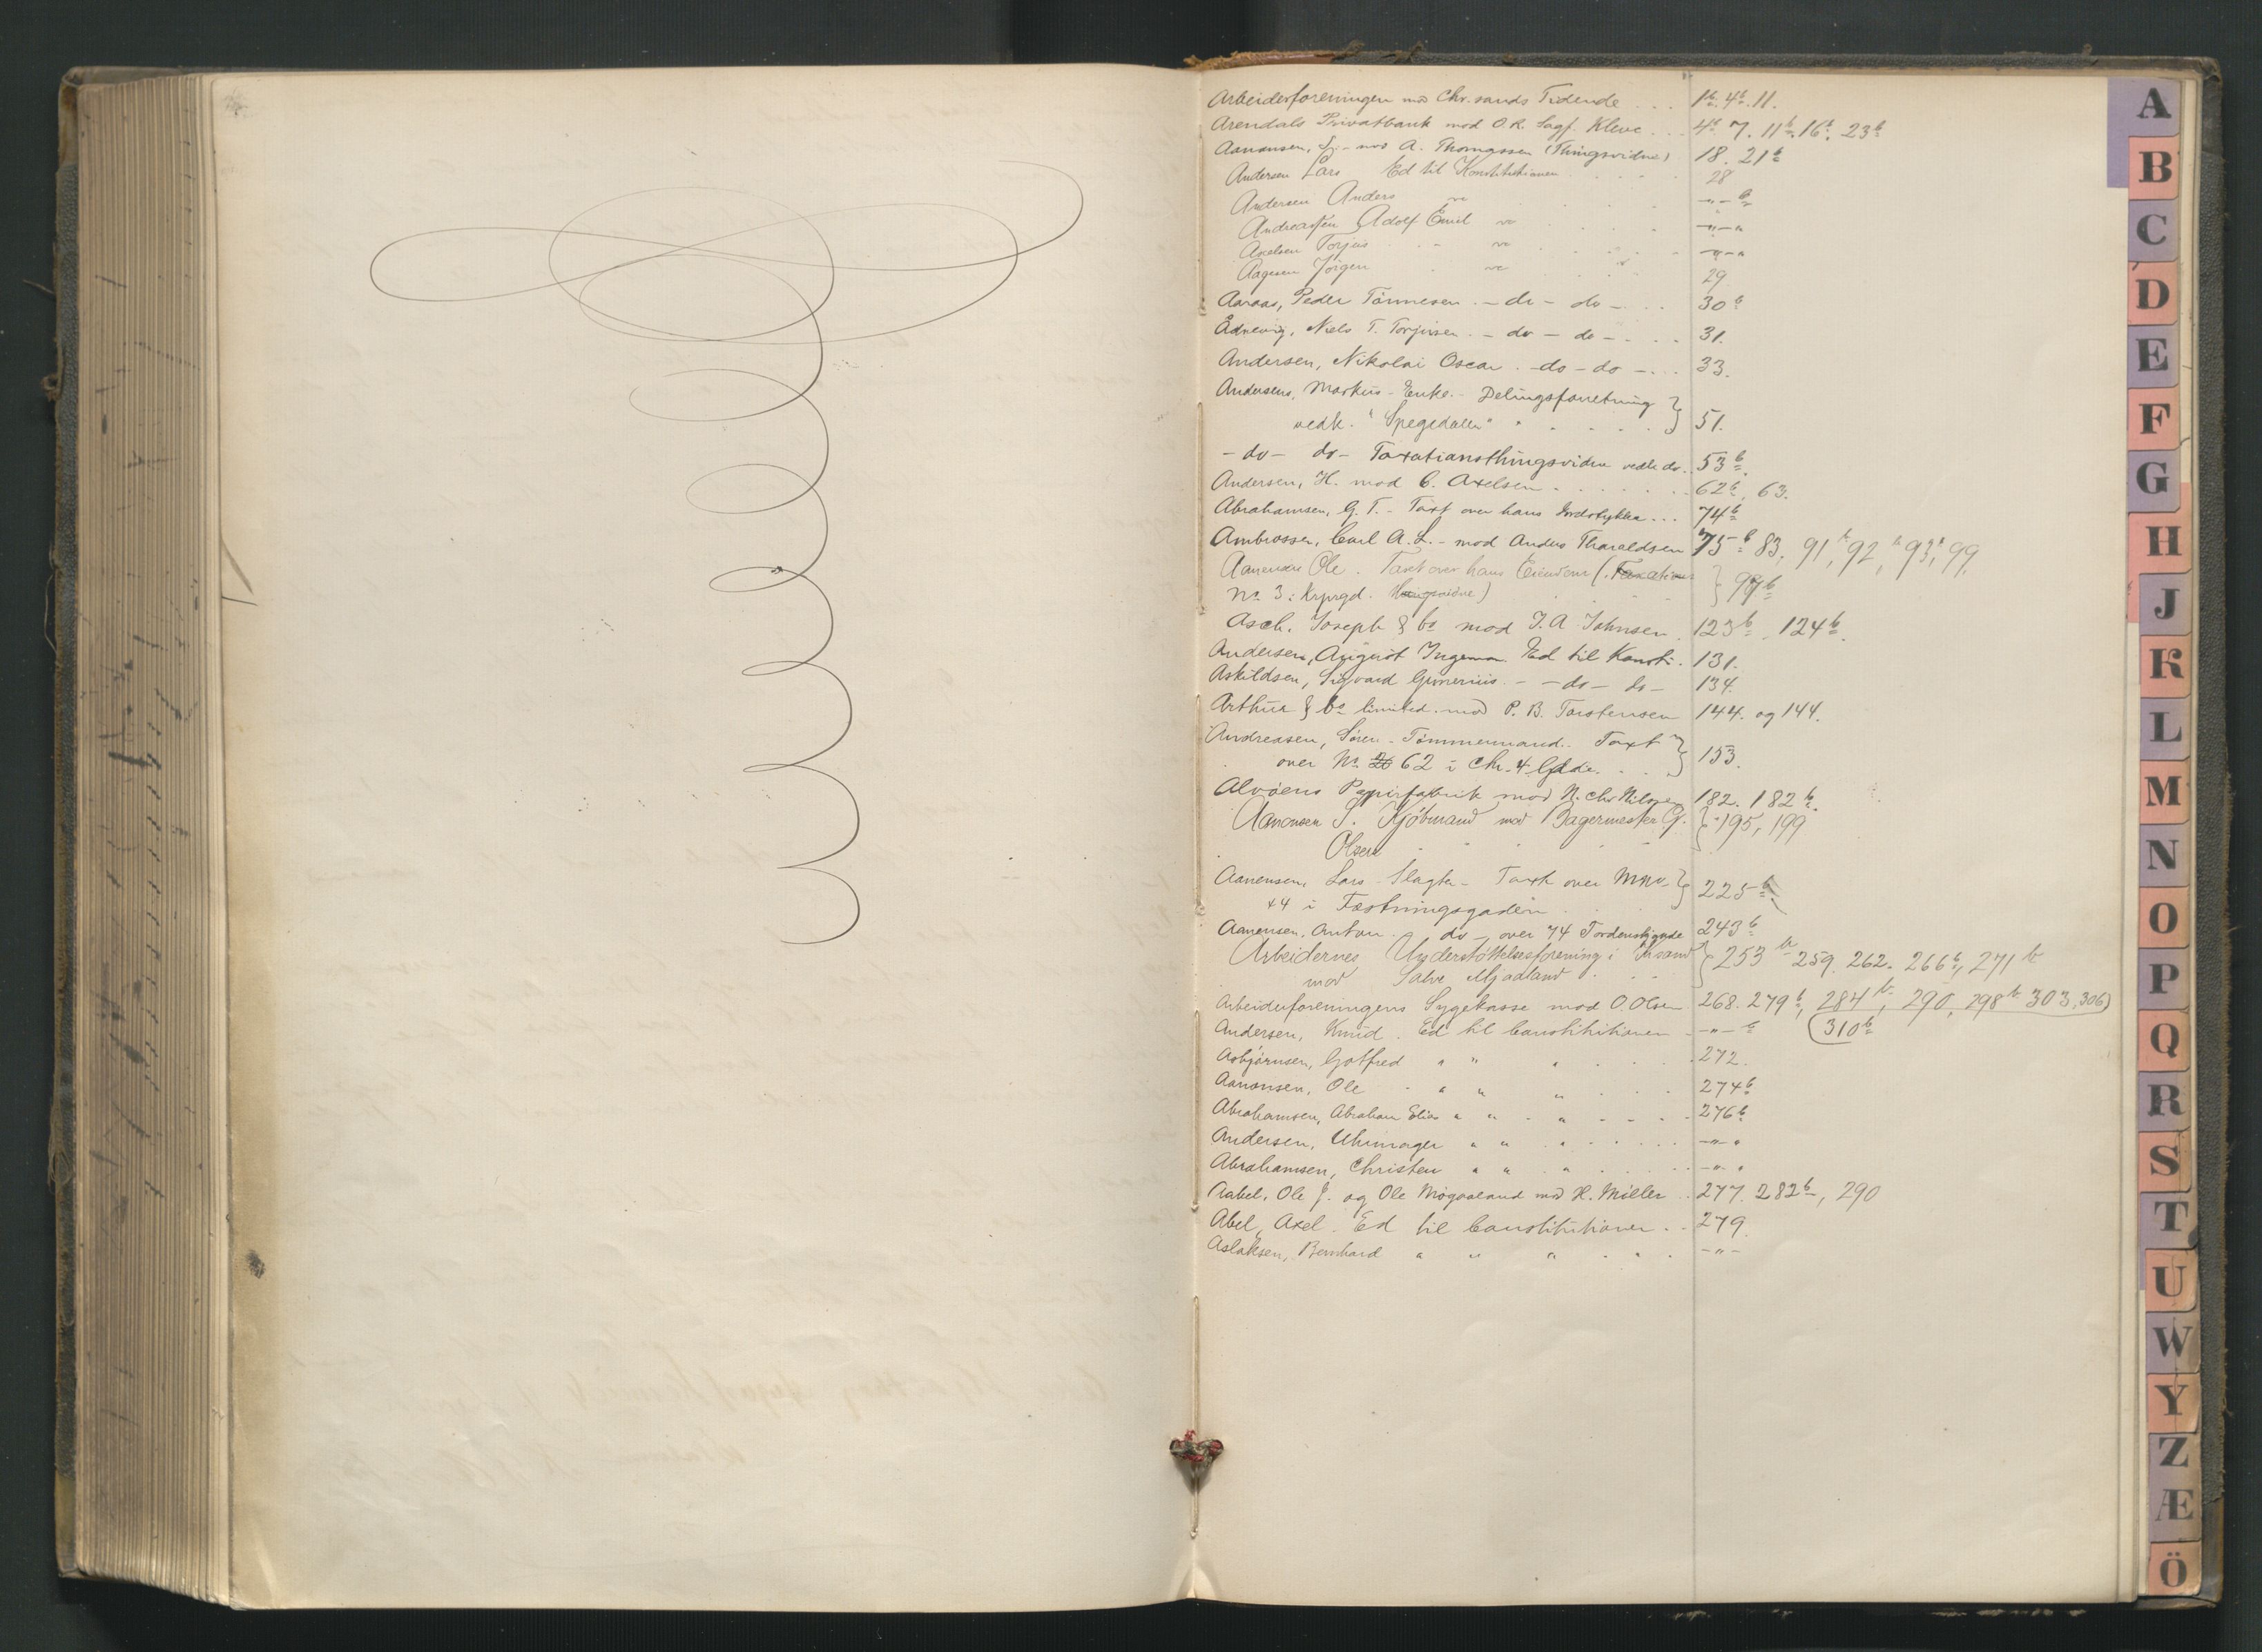 Arbeiderforeningen mod Chr.sands Tidende . . . 1b. 4b. 11.
Arendals Privatbank mod O. R. Sagf. Kleve . . . 4b. 7. 11b. 16b. 23b
Aanonsen, S. - mod A. Thomassen (Thingsvidne) 18. 21b
Andersen Lars Ed til Konstitutionen . . . 28
Andersen Anders " - " - b
Andreassen Adolf Emil " - " - "
Axelsen Torjus " - " - "
Aagesen Jörgen 29
Aaraas, Peder Tönnesen . - do - do - . . . 30b
Ådnevig, Niels T. Torjusen . - do - do - . . . 31.
Andersen, Nikolai Oscar . - do - do - . . . 33.
Andersens, Markus - Enke. - Delingsforretning
vedk. "Spegedalen" 51.
- do - do - Taxationsthingsvidne vedk. do. . 53b.
Andersen, H. mod C. Axelsen . . . 62b, 63.
Abrahamsen, G. T. - Taxt over hans Jordstykke . . . 74b
Ambrossen, Carl A. L. - mod Anders Tharaldsen 75b 83, 91, b 92, b 93, b 99,
Aanensen Ole . Taxt over hans Eiendom (Taxations
No 3: 99b
Asch, Joseph & Co mod J. A Johnsen . 123b, 124b.
Andersen, August Ingeman Ed til Konsti. 131.
Askildsen, Sigvard Gunerius . - - do - do - 134.
Arthur & Co limited. mod P. B. Torstensen 144. og 144.
Andreasen, Sören - Tömmermand . . Taxt
over No 26 62 i Chr. 4. Gade . . . 153.
Alvöens Papirfabrik mod N. Chr Nilsen 182. 182b.
Aanonsen S. Kjöbmand mod Bagermester G. 195, 199
Olsen
Aanensen, Lars - Slagter - Taxt over MNo
44 i Fæstningsgaden 225b.
Aanensen, Anton . do - over 74 Tordenskjgade 243b
Arbeidernes Understöttelsesforening i Chrsand 253b 259, 262. 266b, 271b
mod Salve Mjaaland
Arbeiderforeningens Sygekasse mod O. Olsen 268. 279b, 284b, 290, 298b 303, 306)
Andersen, Knud . Ed til Constitutionen - " - b (310b
Asbjörnsen, Gotfred " " " . . . 272.
Aanonsen, Ole " " " . . . 274b
Abrahamsen, Abraham Elias " " " - - - 276b
Andersen, Uhrmager " " " . . . - " - "
Abrahamsen, Christen " " " . . . - " - "
Aabel, Ole J. og Ole Mögaaland mod H. Möller . . 277. 282b, 290
Abel, Axel . Ed til Constitutionen . . 279.
Aslaksen, Bernhard " " " . . . - " -
A
B
C
D
E
F
G
H
J
K
L
M
N
O
P
Q
R
S
T
U
W
Y
Z
Æ
Ö